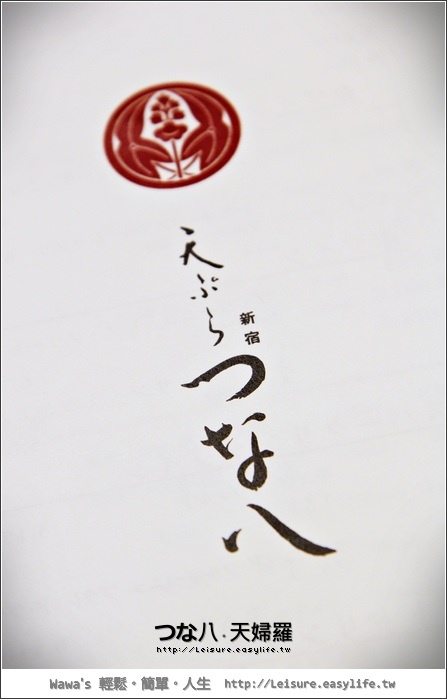 天ぷら
新宿
つな八
つな八.天婦羅
http://Leisure.easylife.tw
Wawa's 輕鬆・簡單・人生 http://Leisure.easylife.tw